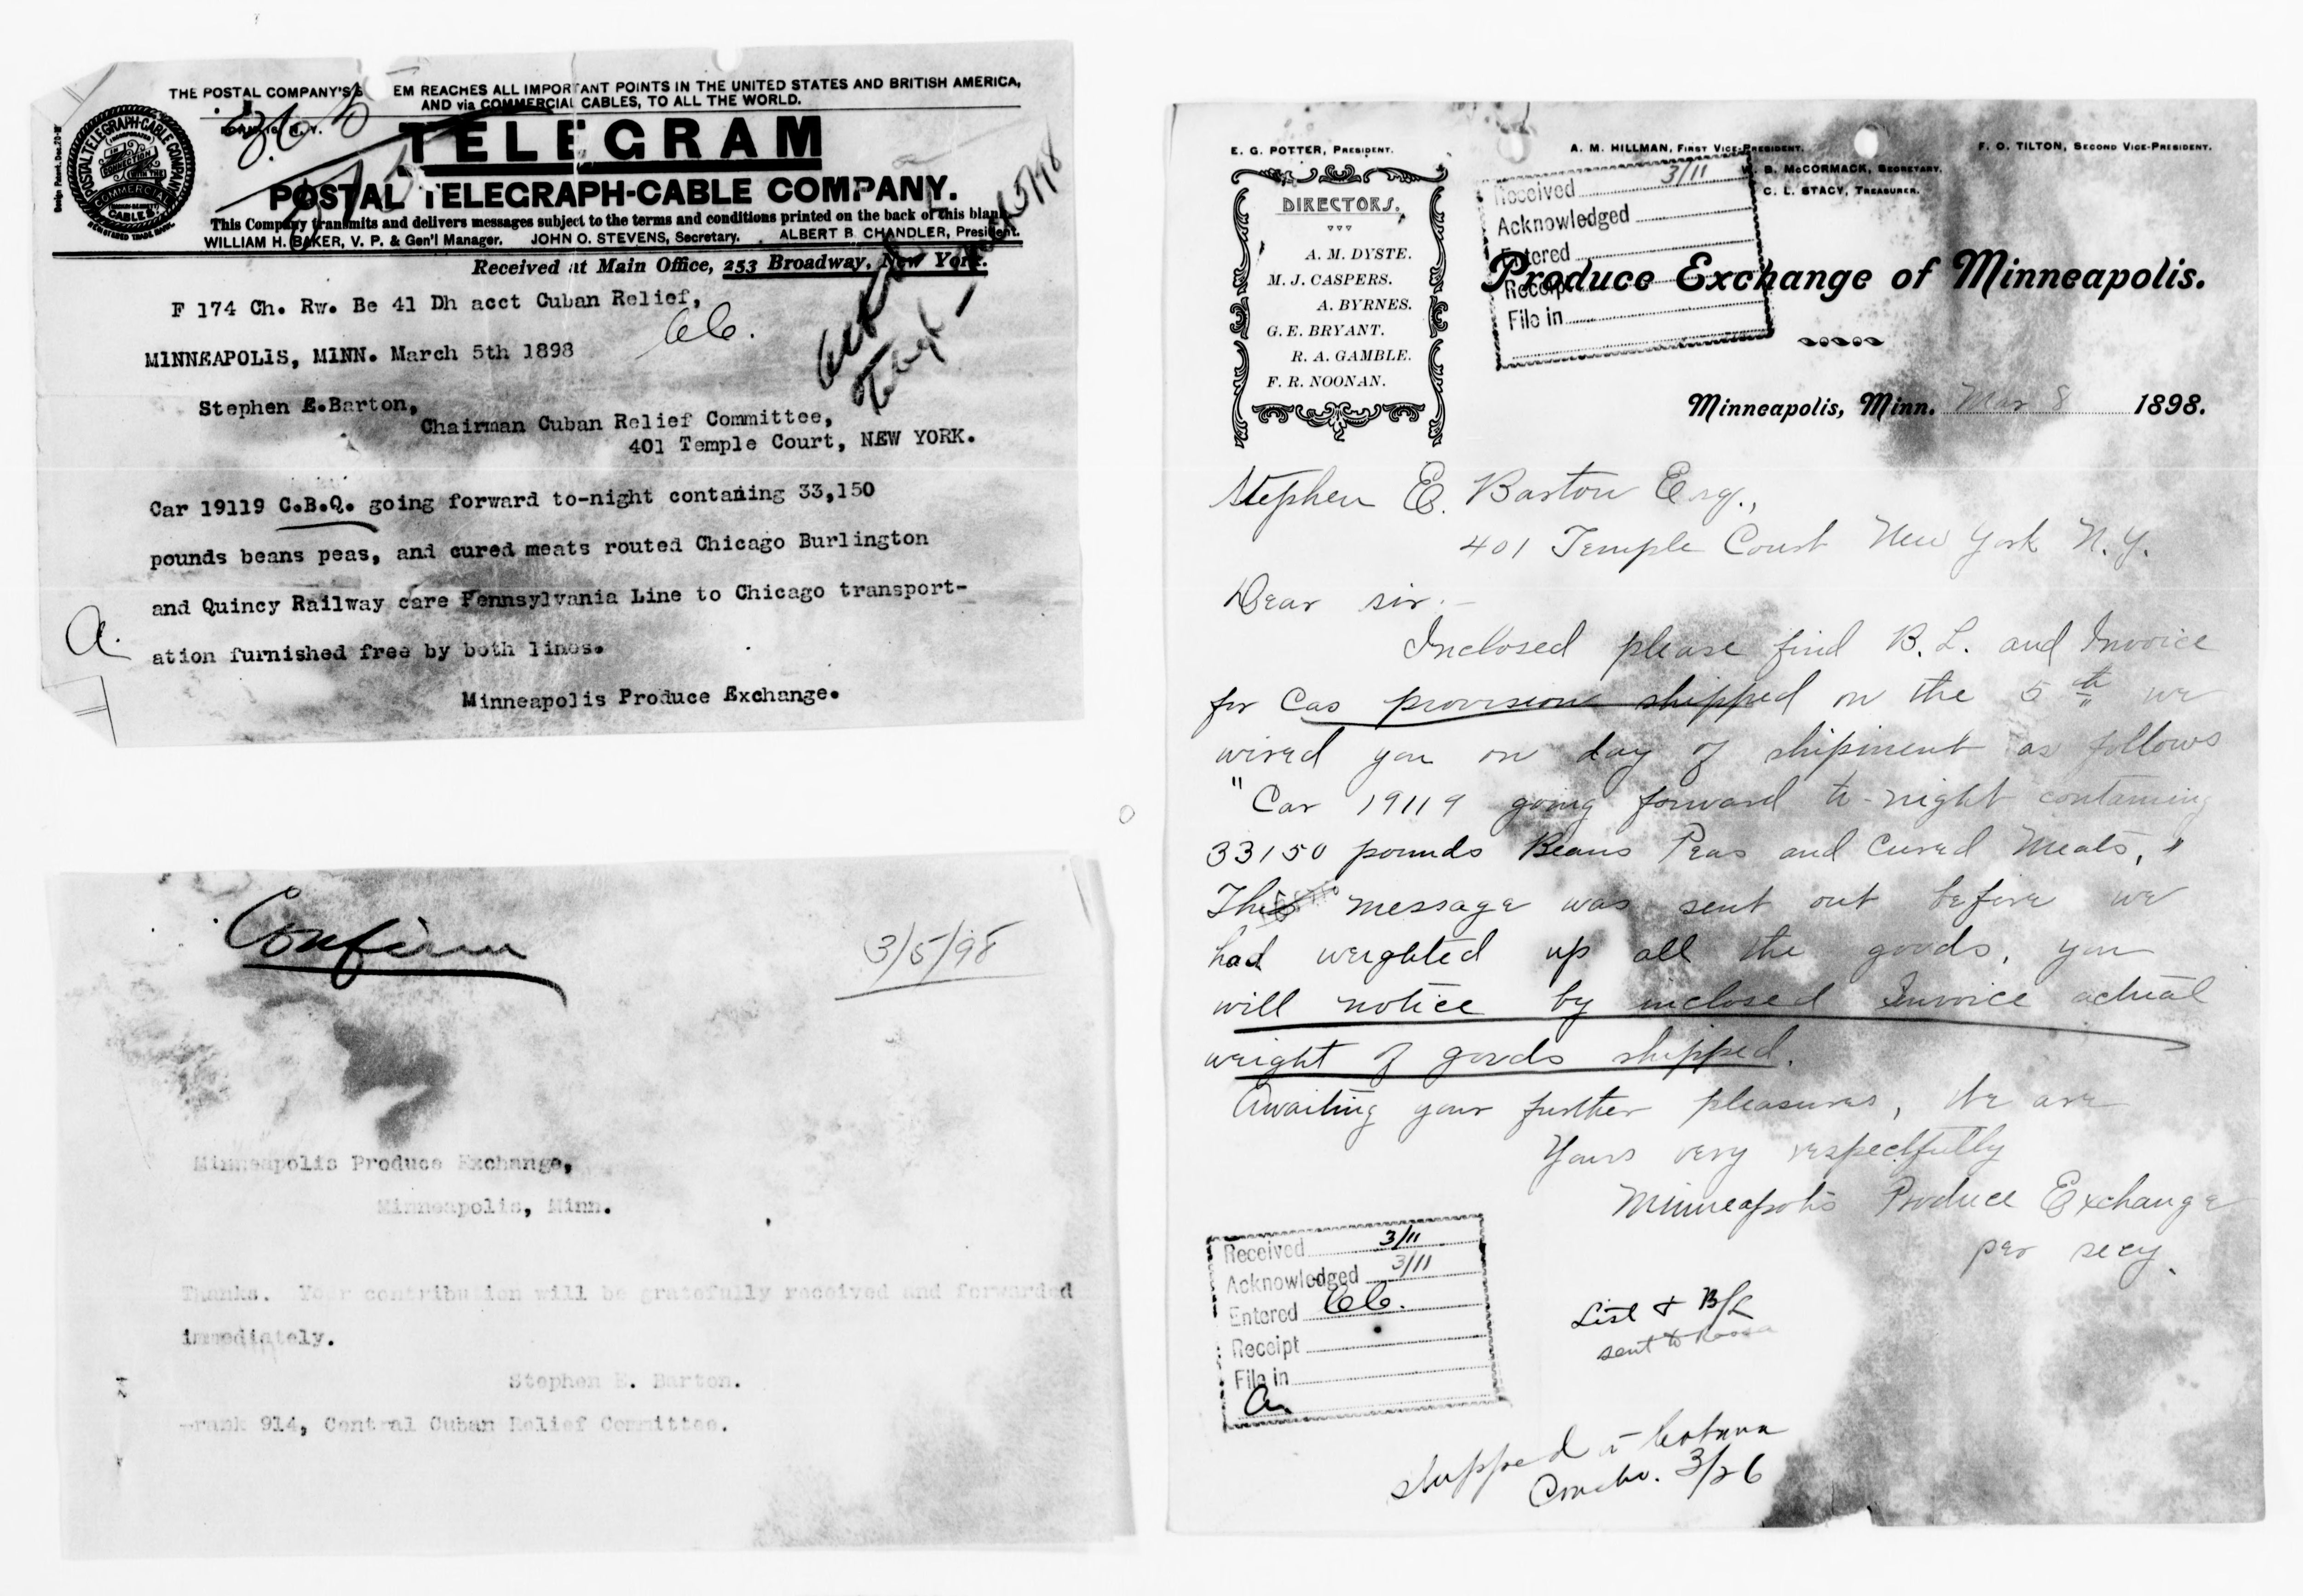 THE POSTAL COMPANY'S S EM REACHES ALL IMPORTANT POINTS IN THE UNITED STATES AND BRITISH AMERICA,
AND via COMMERCIAL CABLES, TO ALL THE WORLD.
TELEGRAM
POSTAL TELEGRAPH-CABLE COMPANY.
This Company transmits and delivers messages subject to the terms and conditions printed on the back of this blank.
WILLIAM H. BAKER, V. P. & Gen'l Manager. JOHN O. STEVENS, Secretary. ALBERT B. CHANDLER, President.
Received at Main Office, 253 Broadway, New York.
POSTAL TELEGRAPH-CABLE COMPANY
INCORPORATED
IN CONNECTION WITH THE
COMMERCIAL CABLES
REGISTERED TRADE MARK.
F 174 Ch. Rw. Be 41 Dh acct Cuban Relief,
MINNEAPOLIS, MINN. March 5th 1898
Stephen E.Barton,
Chairman Cuban Relief Committee,
401 Temple Court, NEW YORK.
Car 19119 C.B.Q. going forward to-night contaning 33,150
pounds beans peas, and cured meats routed Chicago Burlington
and Quincy Railway care Pennsylvania Line to Chicago transport-
ation furnished free by both lines.
a.
Minneapolis Produce Exchange.
Confirm
3/5/98
Minneapolis Produce Exchange,
Minneapolis, Minn.
Thanks. Your contribution will be gratefully received and forwarded
immediately.
Stephen E. Barton.
Frank 914, Central Cuban Relief Committee.
E. G. POTTER, PRESIDENT. A. M. HILLMAN, FIRST VICE-PRESIDENT. F. O. TILTON, SECOND VICE-PRESIDENT.
B. McCORMACK, SECRETARY.
C. L. STACY, TREASURER.
DIRECTORS.
A. M. DYSTE.
M. J. CASPERS.
A. BYRNES.
G. E. BRYANT.
R. A. GAMBLE.
F. R. NOONAN.
Received 3/11
Acknowledged
Entered
Receipt
File in
Produce Exchange of Minneapolis.
Minneapolis, Minn. Mar 8 1898.
Stephen E. Barton Esq.,
401 Temple Court New York N.Y.
Dear sir.-
Inclosed please find B. L. and Invoice
for Car provisions shipped on the 5th we
wired you on day of shipment as follows
"Car 19119 going forward to-night containing
33150 pounds Beans Peas and Cured Meats,"
This message was sent out before we
had weighted up all the goods, you
will notice by inclosed Invoice actual
weight of goods shipped.
Awaiting your further pleasures, We are
Yours very respectfully
Minneapolis Produce Exchange
per secy.
Received 3/11
Acknowledged 3/11
Entered
Receipt
File in
a.
List & B/L
sent to
shipped
3/26